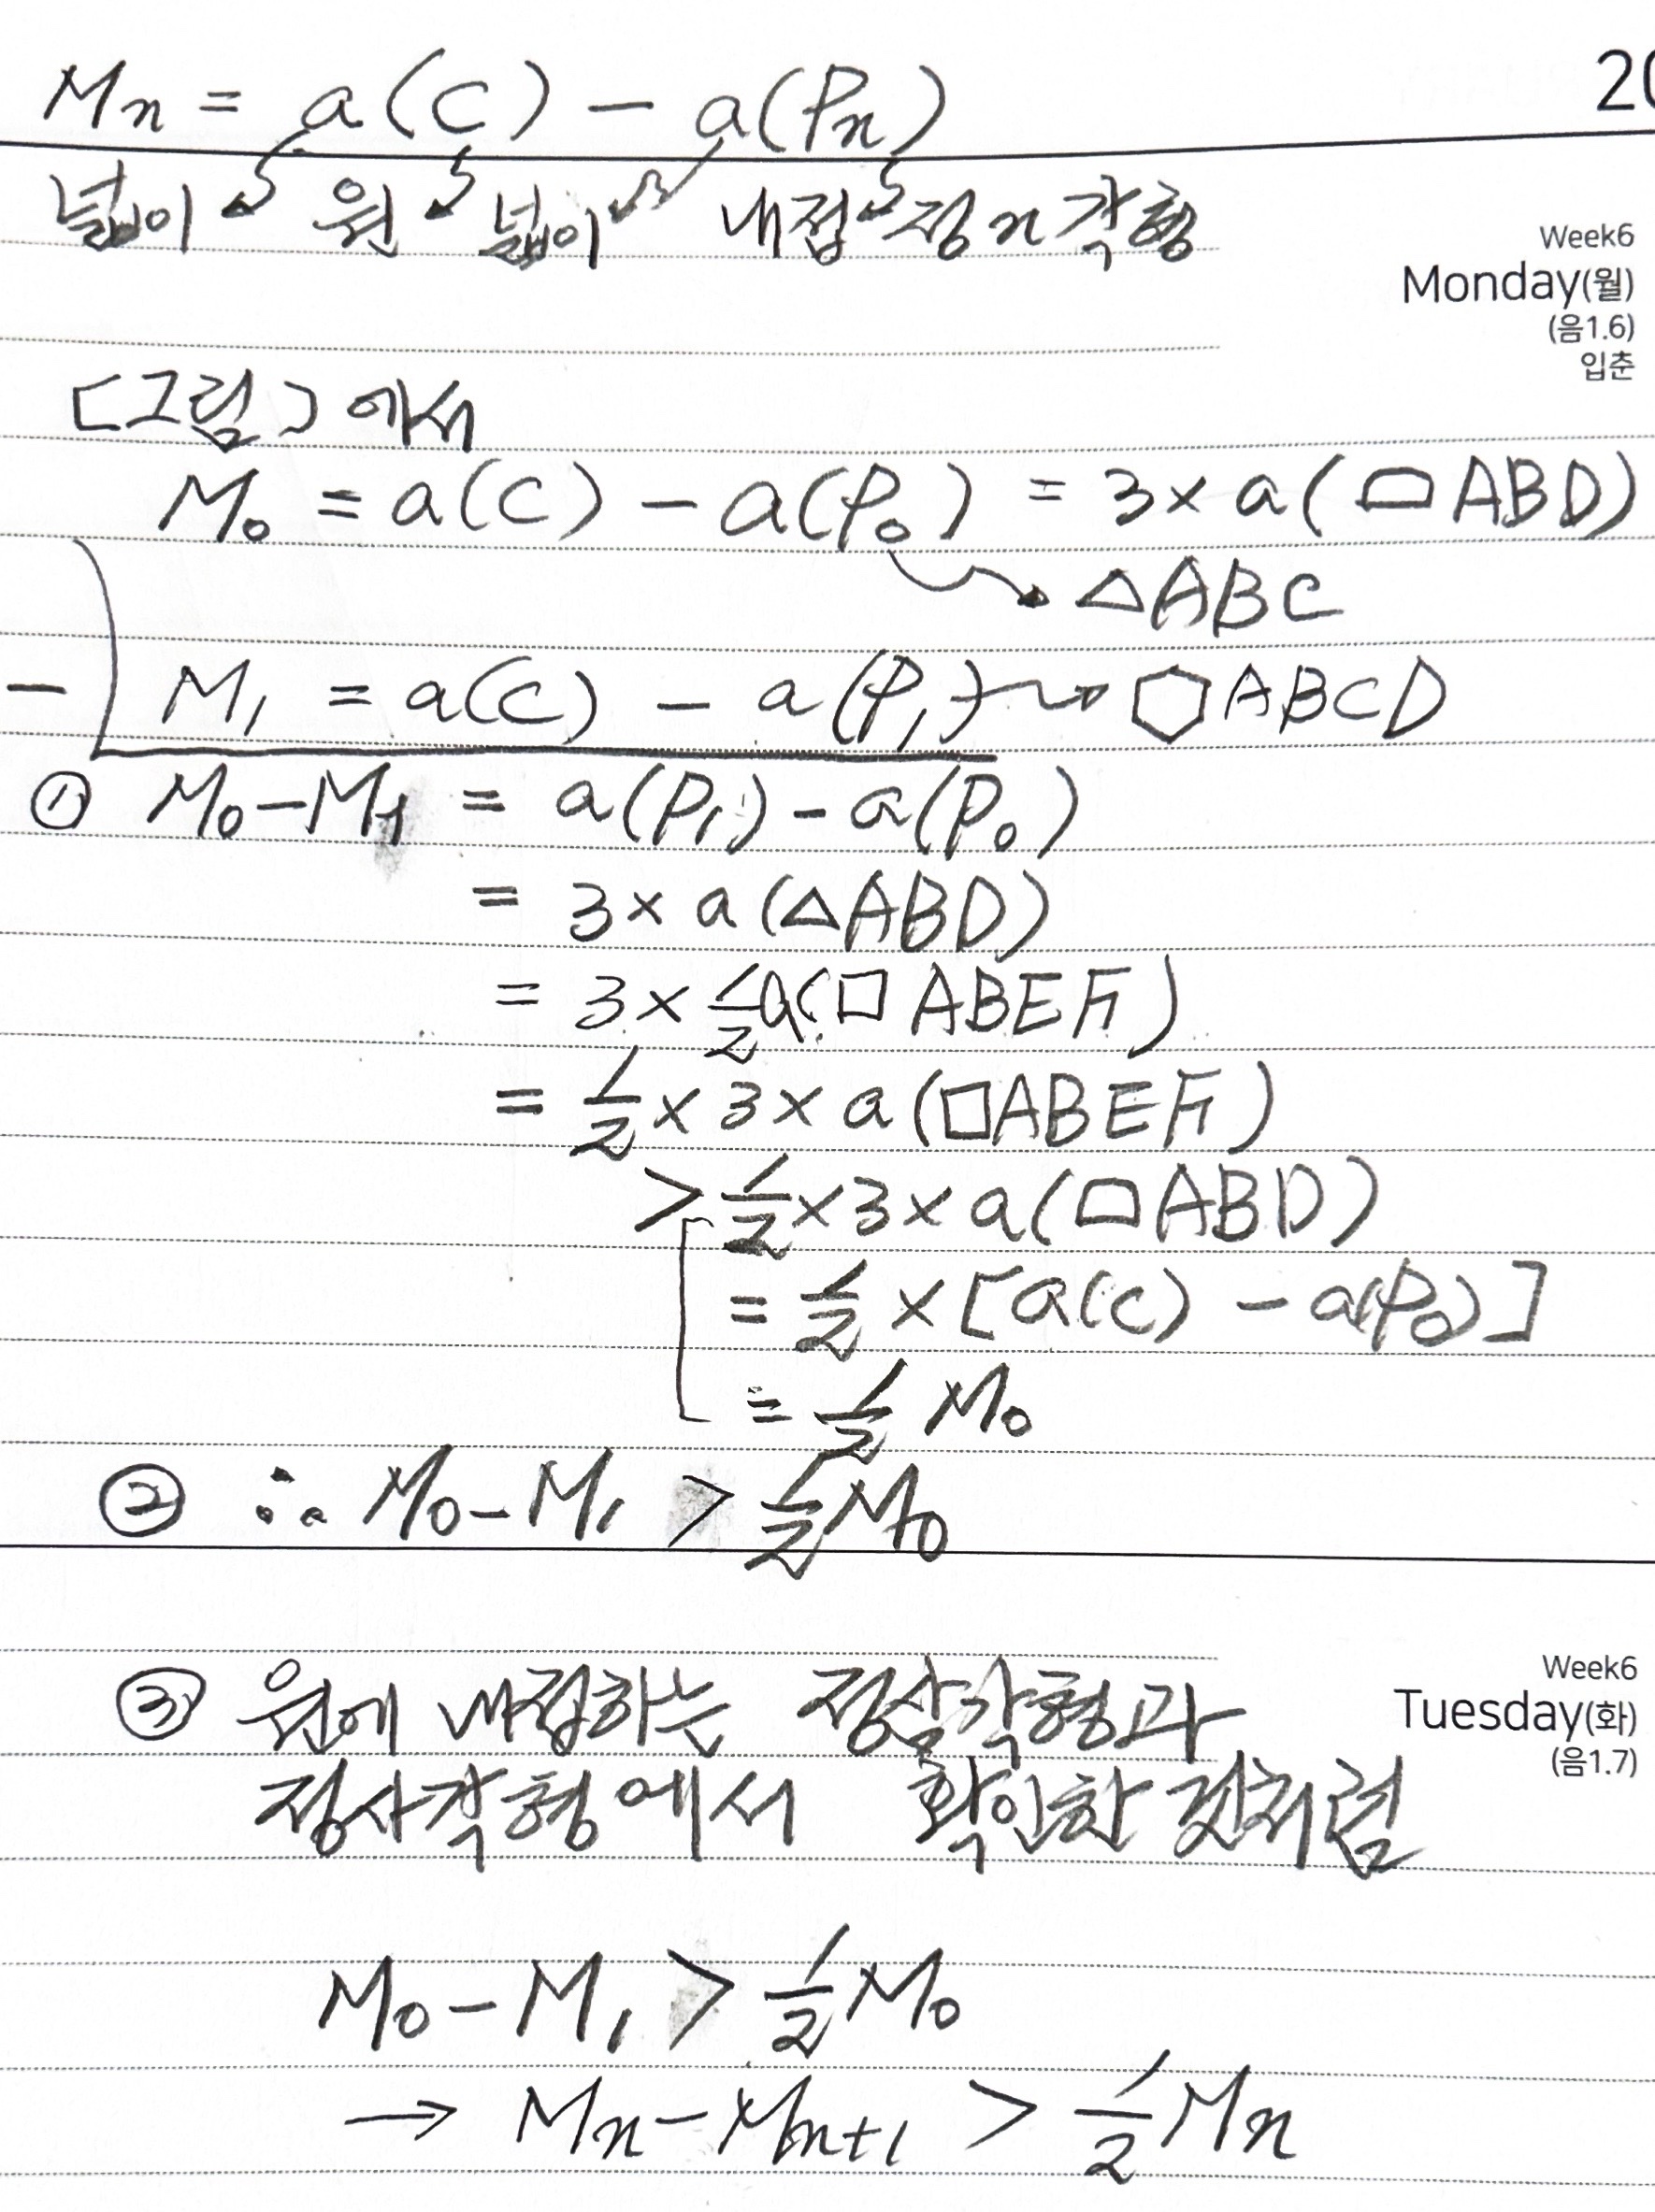 Mn = a(C) - a(Pn)
20
넓이 원 넓이 내접 정n각형
Week6
Monday(월)
(음1.6)
입춘
[그림]에서
M₀ = a(C) - a(P₀) = 3×a(⌓ABD)
△ABC
- M₁ = a(C) - a(P₁) → ⬡ABCD
① M₀-M₁ = a(P₁)-a(P₀)
= 3×a(△ABD)
= 3×½a(□ABEF)
= ½×3×a(□ABEF)
> ½×3×a(⌓ABD)
= ½×[a(C) - a(P₀)]
= ½ M₀
② ∴ M₀-M₁ > ½M₀
Week6
Tuesday(화)
(음1.7)
③ 원에 내접하는 정삼각형과
정사각형에서 확인한 것처럼
M₀-M₁ > ½M₀
→ Mn-Mn+1 > ½Mn